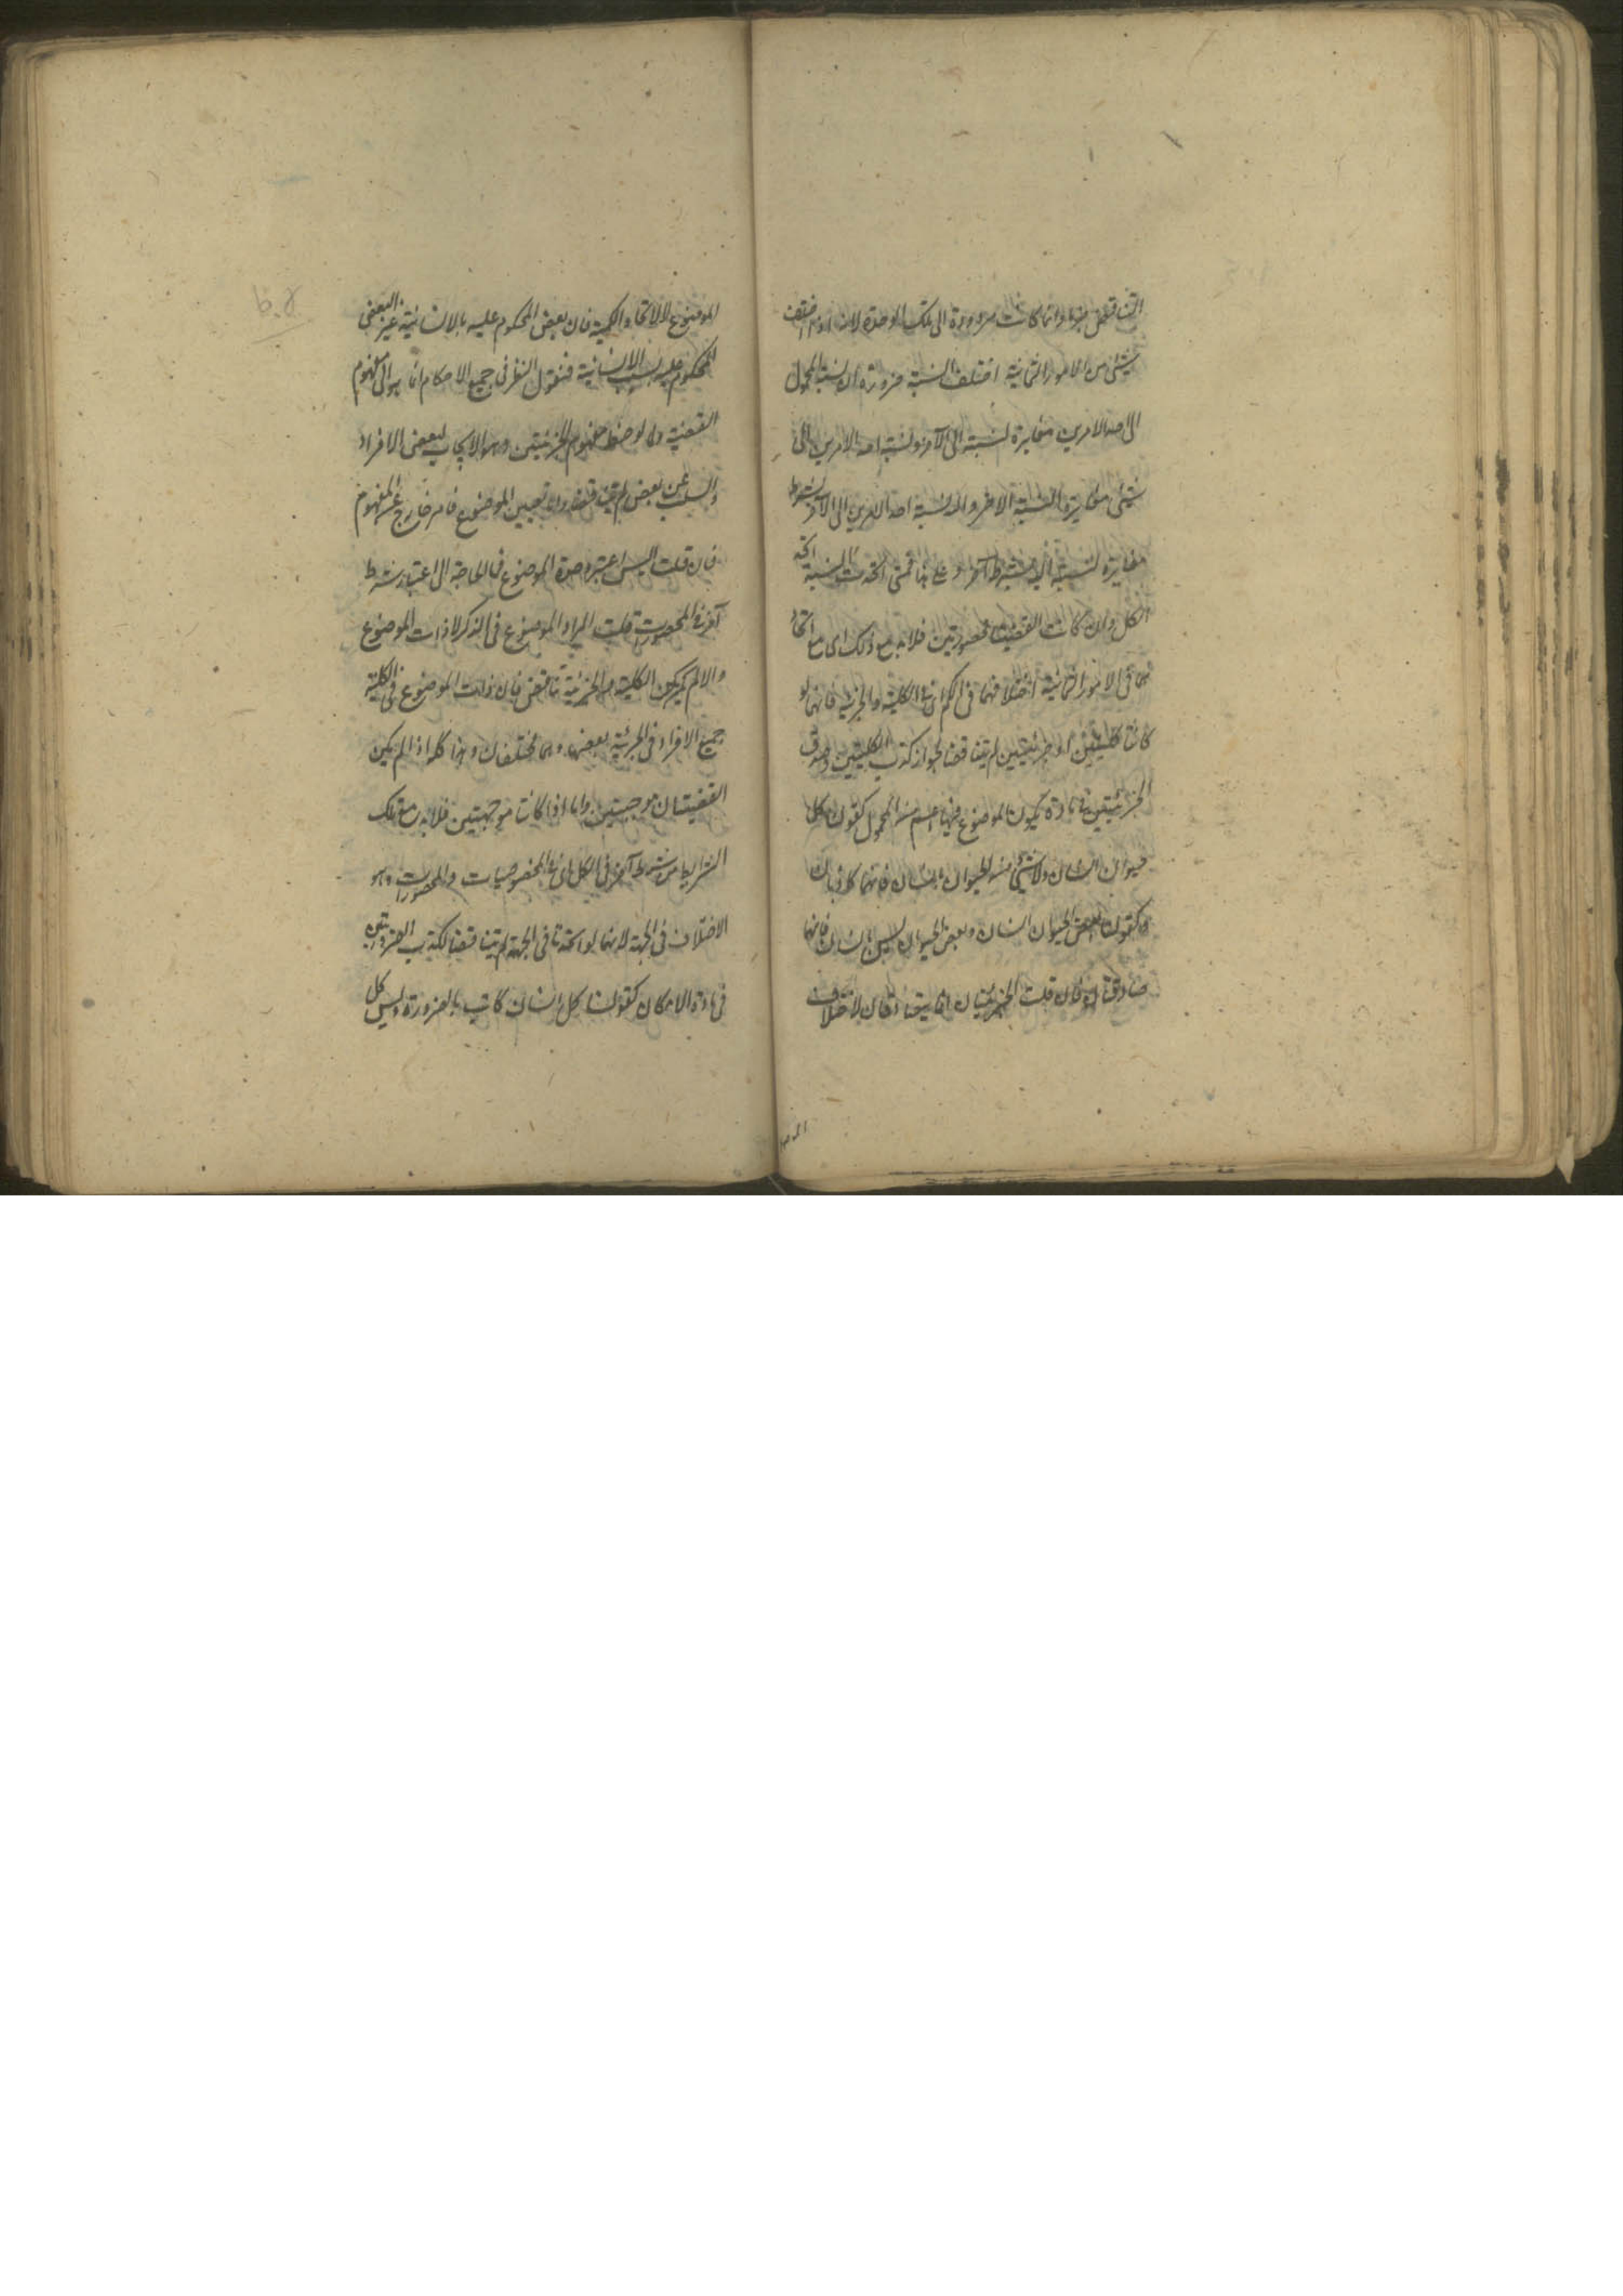 التناقض جزما وانما كانت مردودة الى تلك الوحدة لانه اذا اختلف
شيئ من الامور الثمانية اختلف النسبة ضرورة ان نسبة المحمول
الى احد الامرين مغايرة لنسبته الى الآخر ونسبة احد الامرين الى
شيئ مغايرة لنسبة الآخر اليه ونسبة احد الامرين الى الآخر بشرط
مغايرة لنسبته اليه بشرط آخر و على هذا فمتى اتحدت النسبة اتحد
الكل وان كانت القضيتان محصورتين فلا بد مع ذلك اى مع اتحاد
هما فى الامور الثمانية اختلافهما فى الكم اى فى الكلية والجزئية فانهما لو
كانتا كليتين او جزئيتين لم يتناقضا لجواز كذب الكليتين وصدق
الجزئيتين فى مادة يكون الموضوع فيها اعم من المحمول كقولنا كل
حيوان انسان ولا شيئ من الحيوان بانسان فانهما كاذبتان
وكقولنا بعض الحيوان انسان وبعض الحيوان ليس بانسان فانهما
صادقتان فان قلت الجزئيتان انما يتصادقان لاختلاف
الموضـ
الموضوع لا لاتحاد الكمية فان بعض المحكوم عليه بالانسانية غير البعض
المحكوم عليه بسلب الانسانية فنقول النظر فى جميع الاحكام انما هو الى مفهوم
القضية ولما لوحظ مفهوم الجزئيتين وهو الايجاب لبعض الافراد
والسلب عن بعض لم يتناقضا واما تعيين الموضوع فامر خارج عن المفهوم
فان قلت اليس اعتبر وحدة الموضوع فما الحاجة الى اعتبار شرط
آخر فى المحصورات قلت المراد الموضوع فى الذكر لا ذات الموضوع
والا لم يكن الكلية و الجزئية تناقض فان ذات الموضوع فى الكلية
جميع الافراد فى الجزئية بعضها وهما مختلفان وهذا كله اذا لم يكن
القضيتان موجهتين واما اذا كانتا موجهتين فلا بد مع تلك
الشرايط من شرط آخر فى الكل اى فى المخصوصيات والمحصورات وهو
الاختلاف فى الجهة لانهما لو اتحدتا فى الجهة لم يتناقضا لكذب الضروريتين
فى مادة الامكان كقولنا كل انسان كاتب بالضرورة وليس كل